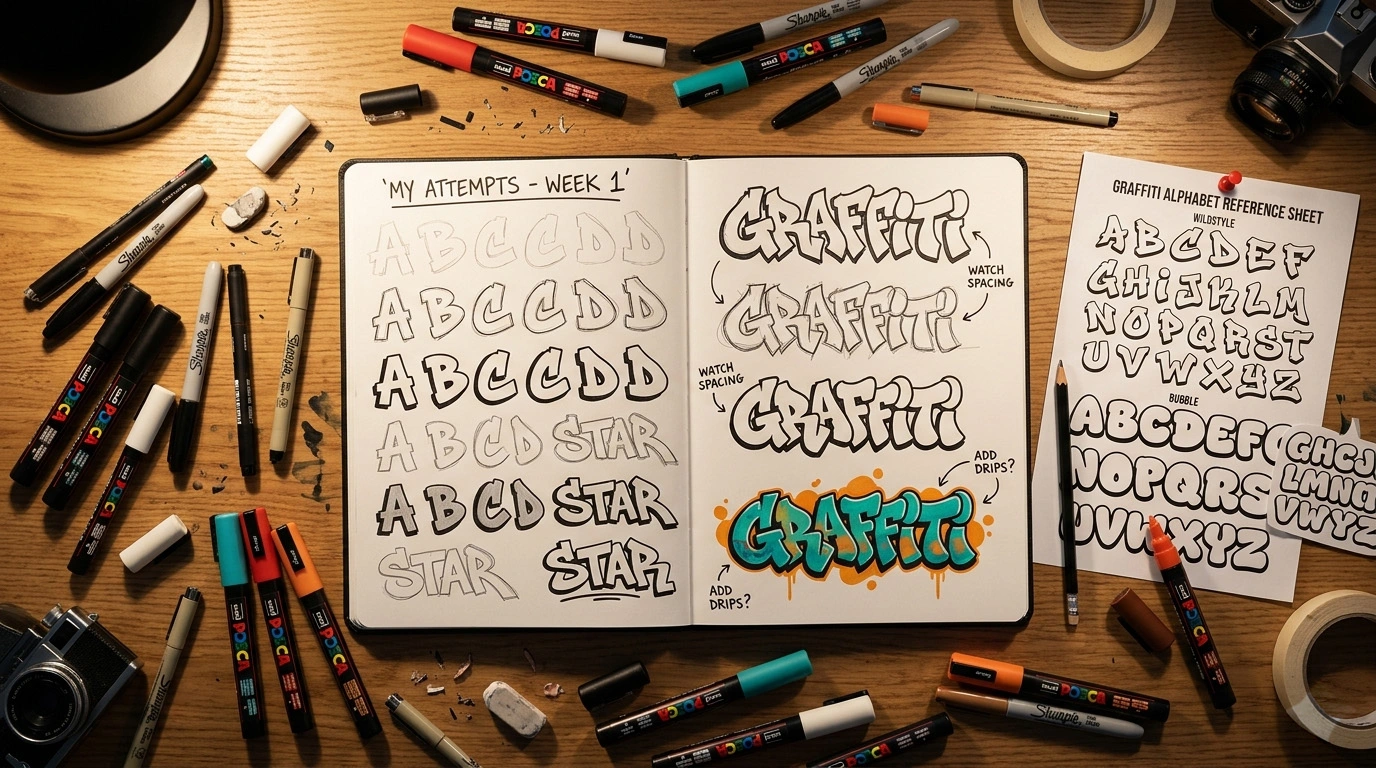 Sharpie
POSCA
POSCA
POSCA
Sharpie
'MY ATTEMPTS - WEEK 1'
A B C C D D
A B C C D D
A B C C D D
A B C D STAR
A B C D STAR
STAR STAR
GRAFFiTi
WATCH
SPACING
GRAFFiTi
WATCH
SPACING
GRAFFiTi
ADD
DRIPS?
GRAFFiTi
ADD
DRIPS?
GRAFFITI ALPHABET REFERENCE SHEET
WILDSTYLE
A B C D E F
G H i J K L M
N O P Q R S T
U V W X Y Z
BUBBLE
ABCDEF
NOPQRS
UVWXYZ
GHCJ
LMN
VWYZ
Sharpie
Sharpie
Sharpie
POSCA
POSCA
POSCA
POSCA
POSCA
POSCA
Sharpie
POSCA
POSCA
POSCA
POSCA
Sharpie
POSCA